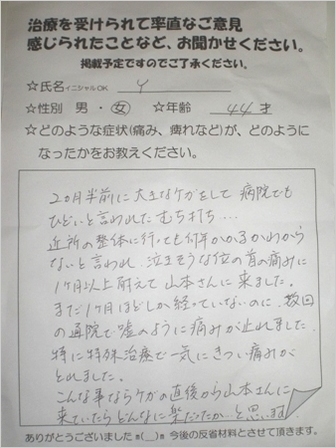 治療を受けられて率直なご意見
感じられたことなど、お聞かせください。
掲載予定ですのでご了承ください。
☆氏名イニシャルOK Y
☆性別 男・女 ☆年齢 44才
☆どのような症状(痛み、痺れなど)が、どのように
なったかをお教えください。
2ヵ月半前に大きなケガをして病院でも
ひどいと言われたむち打ち…
近所の整体に行っても何年かかるかわから
ないと言われ、泣きそうな位の首の痛みに
1ヶ月以上耐えて山本さんに来ました。
まだ1ヶ月ほどしか経っていないのに、数回
の通院で嘘のように痛みが止れました。
特に特殊治療で一気にきつい痛みが
とれました。
こんな事ならケガの直後から山本さんに
来ていたらどんなに楽だったか…と思います。
ありがとうございましたm(__)m 今後の反省材料とさせて頂きます。